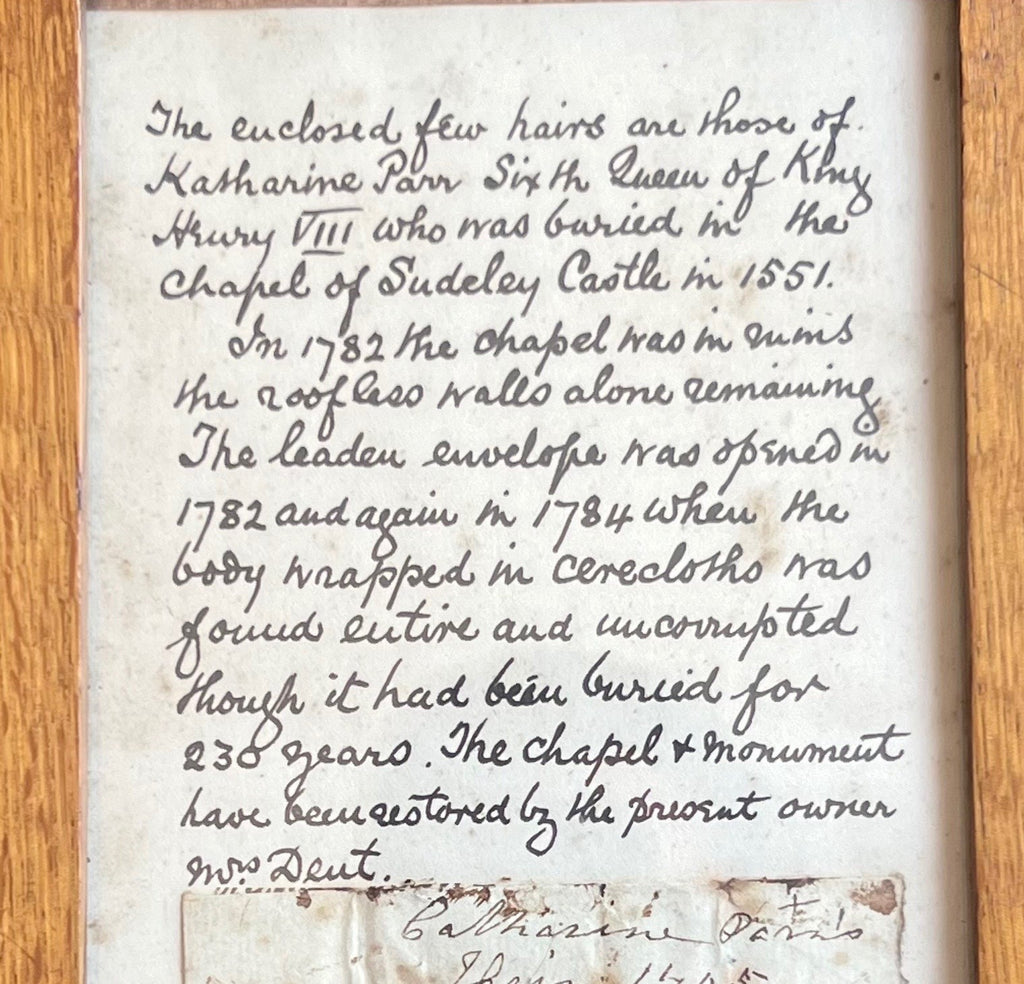 The enclosed few hairs are those of.
Katharine Parr Sixth Queen of King
Henry VIII who was buried in the
chapel of Sudeley Castle in 1551.
In 1782 the chapel was in ruins
the roofless walls alone remaining
The leaden envelope was opened in
1782 and again in 1784 when the
body wrapped in cerecloths was
found entire and uncorrupted
though it had been buried for
230 years. The chapel & monument
have been restored by the present owner
Mrs. Dent.
Catharine Parr's